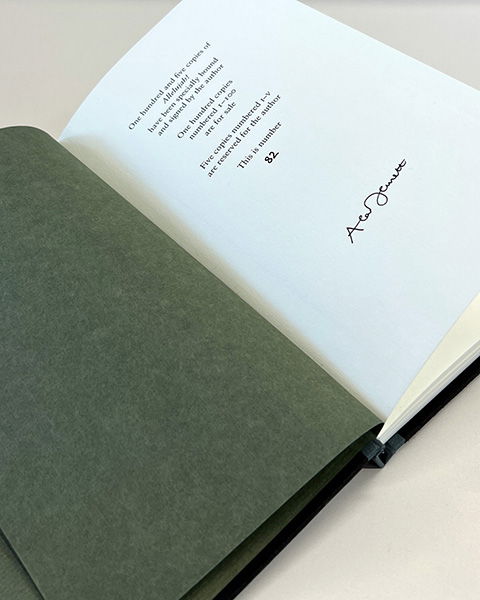 One hundred and five copies of
Allelujah!
have been specially bound
and signed by the author
One hundred copies
numbered 1–100
are for sale
Five copies numbered I–V
are reserved for the author
This is number
82
Alan Bennett